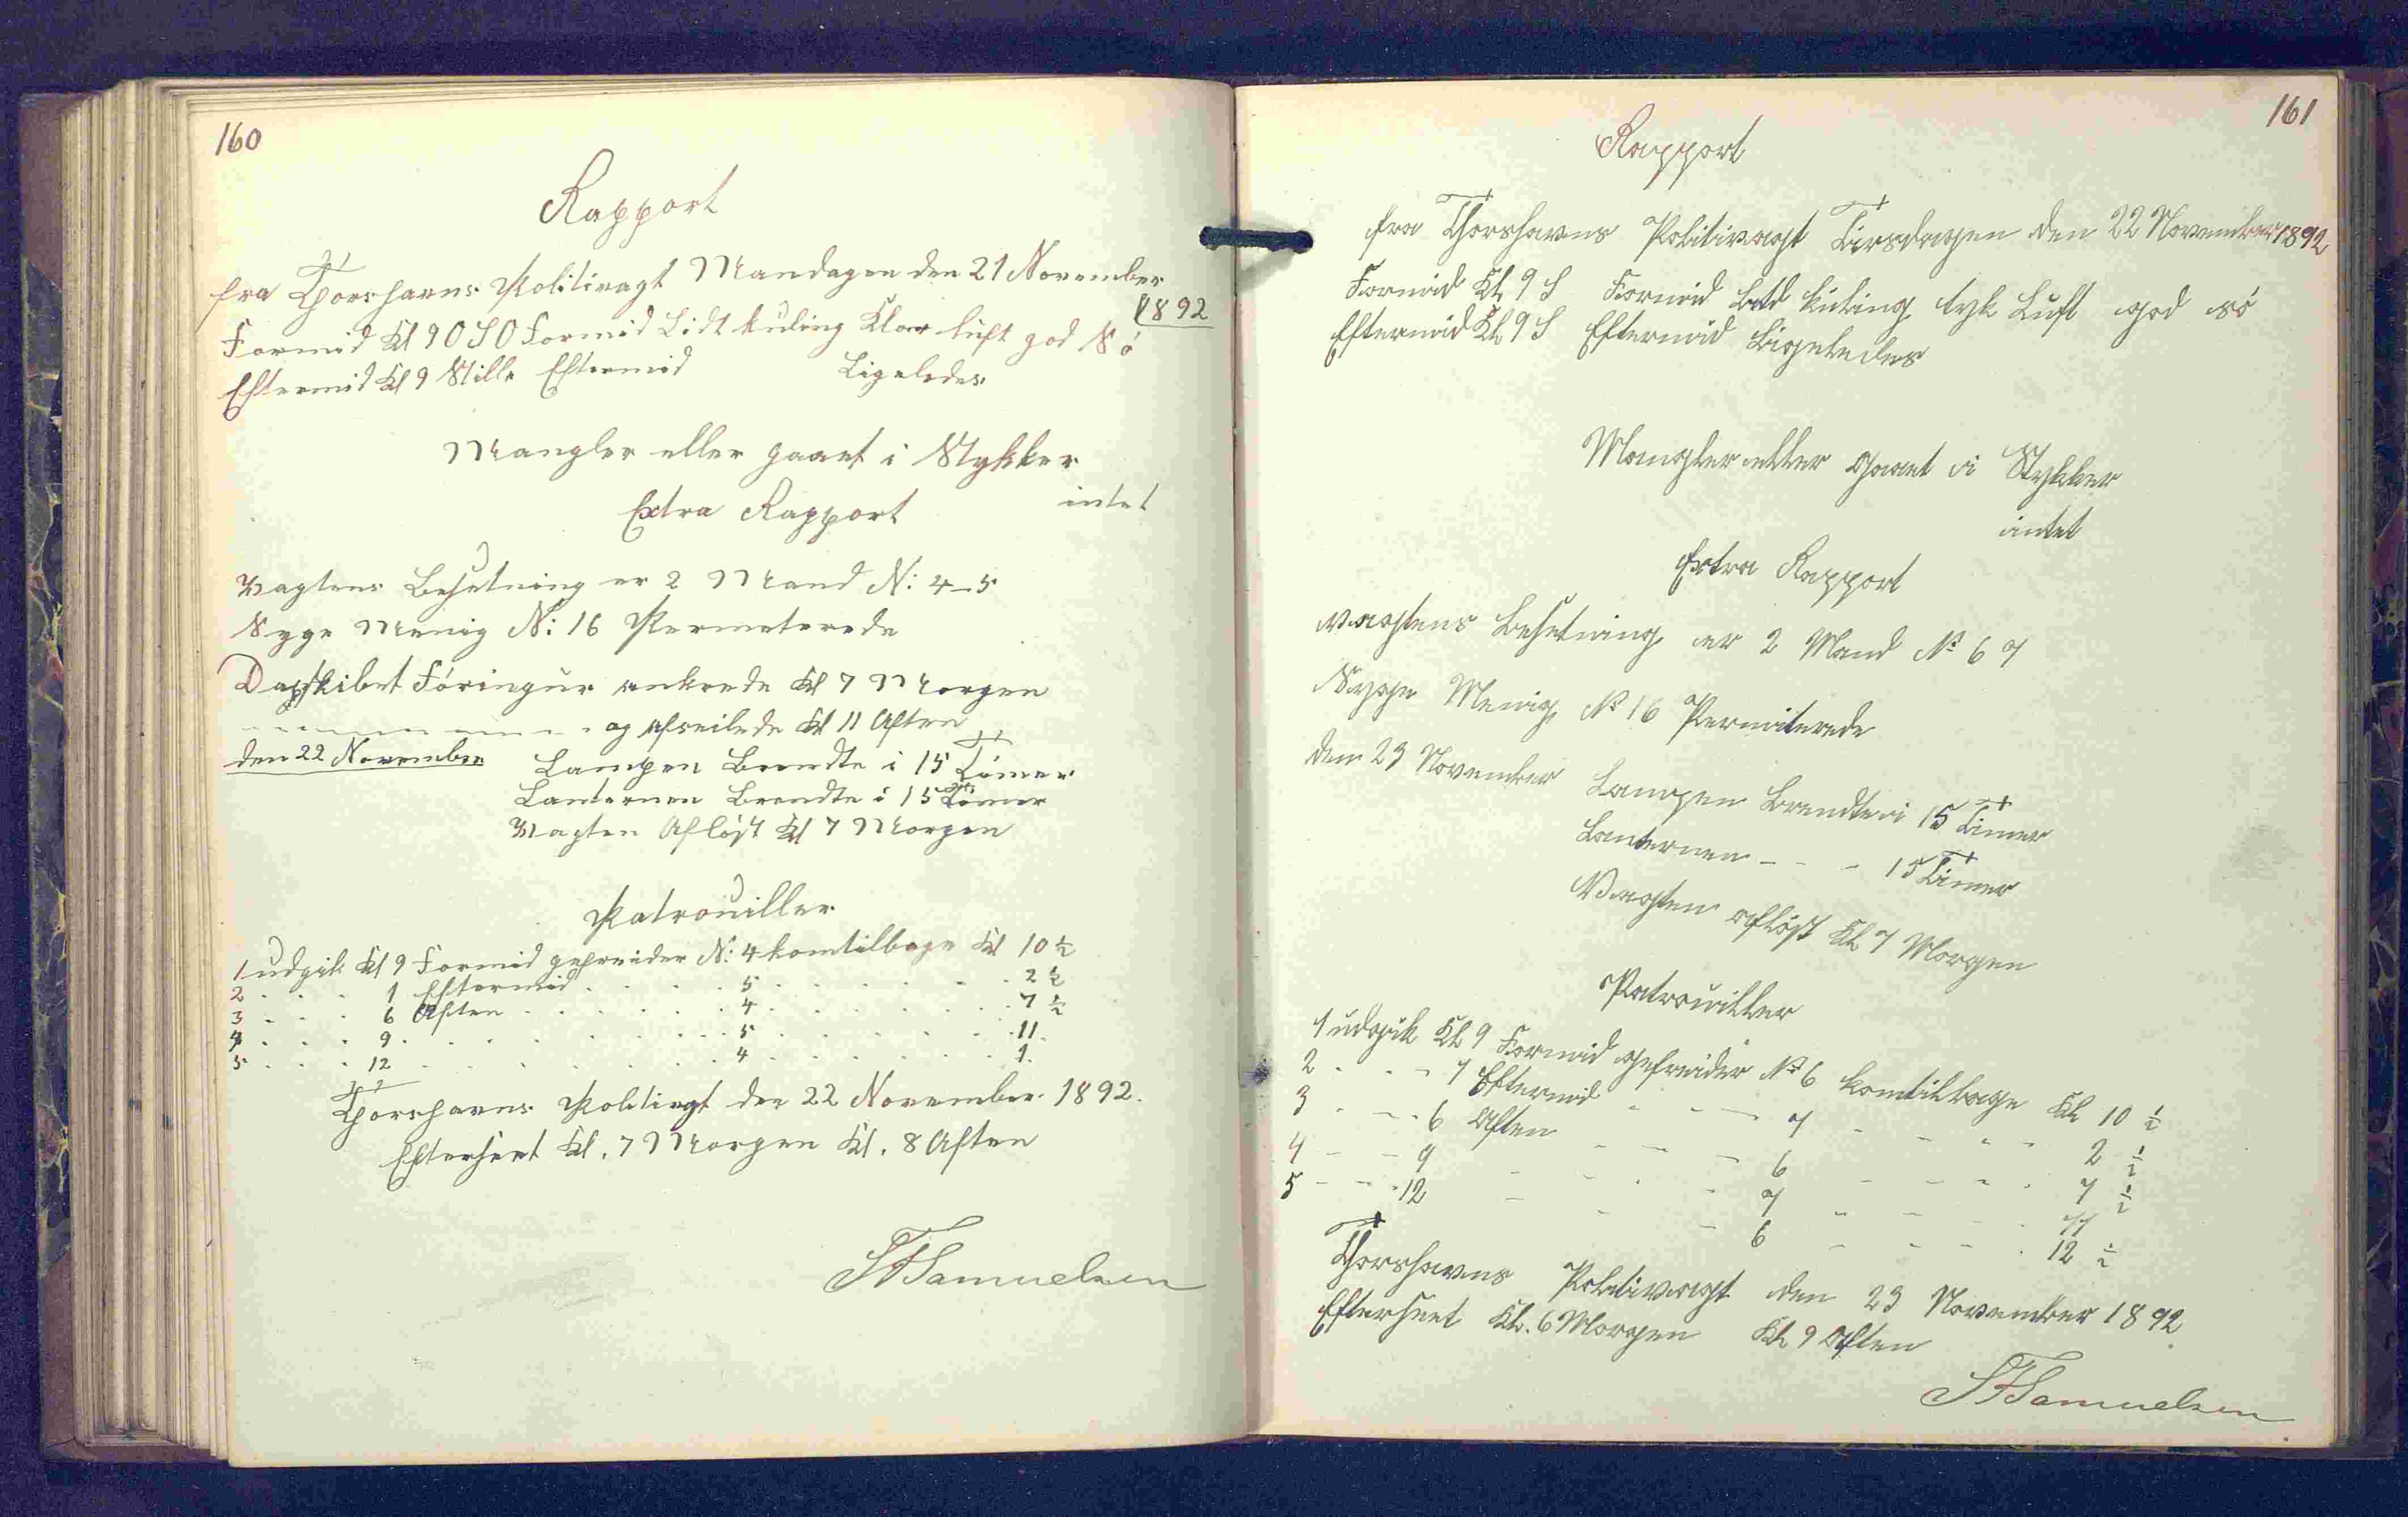 160
Rapport
fra Thorshavns Politivagt Mandagen den 21 November
1892
Formid Kl 9 O S O Formid Lidt kuling Klar luft god Sö
Eftermid Kl 9 Stille Eftermid Ligeledes
Mangler eller gaaet i Stykker
intet
Extra Rapport
Vagtens Besetning er 2 Mand N: 4-5
Syge Menig N: 16 Permeterede
Dapskibet Föringur ankrede Kl 7 Morgen
og Afseilede Kl 11 Aften
den 22 November Lampen Brendte i 15 Timer
Lanternen Brendte i 15 Timer
Vagten Aflöst Kl 7 Morgen
Patrouiller
1 udgik Kl 9 Formid gefreider N: 4 komtilbage Kl 10 ½
2 . . . 1 Eftermid . . . . 5 . . . . . . 2 ½
3 . . . 6 Aften . . . . . 4 . . . . . . 7 ½
4 . . . 9 . . . . . . . 5 . . . . . . 11.
5 . . . 12 . . . . . . . 4 . . . . . . 1.
Thorshavns Politivgt den 22 November 1892.
Efterseet Kl. 7 Morgen Kl. 8 Aften
Samuelsen
161
Rapport
fra Thorshavns Politivagt Tirsdagen den 22 November 1892
Formid Kl 9 S Formid Lidt kuling tyk Luft god sö
Eftermid Kl 9 S Eftermid Ligeledes
Mangler eller Gaaet i Stykker
intet
Extra Rapport
vagtens Besetning er 2 Mand No 6 7
Syge Menig No 16 Permiterede
den 23 November Lampen Brendte i 15 Timer
Lanternen - - - 15 Timer
Vagten aflöst Kl 7 Morgen
Patrouiller
1 udgik Kl 9 Formid gefreider No 6 komtilbage Kl 10 ½
2 . . - 1 Eftermid - - - 7 - - - - 2 ½
3 - - . 6 Aften - - - 6 - - - . 7 ½
4 - - 9 - - . - 7 - - - . 11
5 - - . 12 - - - 6 - - - . 12 ½
Thorshavns Politivagt den 23 November 1892
Efterseet Kl. 6 Morgen Kl 9 Aften
Samuelsen